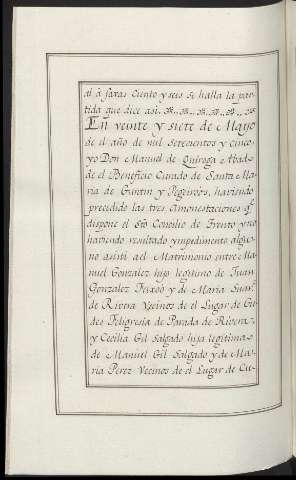 al á foxas Ciento y seis se halla la par-
tida que dice asi.
En veinte y siete de Mayo
de el año de mil Setecientos y cinco
yo Don Manuel de Quiroga Abad
de el Beneficio Curado de Santa Ma-
ria de Guntin y Pigeiros, haviendo
precedido las tres Amonestaciones q.e
dispone el Sto Concilio de Trento y no
haviendo resultado ympedimento algu-
no asisti a el Matrimonio entre Ma-
nuel Gonzalez hijo legitimo de Juan
Gonzalez Feixoo y de Maria Suar.
de Rivera Vecinos de el Lugar de
Feligresia de Parada de Rivera,
y Cecilia Gil Salgado hija legitima
de Manuel Gil Salgado y de Ma-
ria Perez Vecinos de el Lugar de